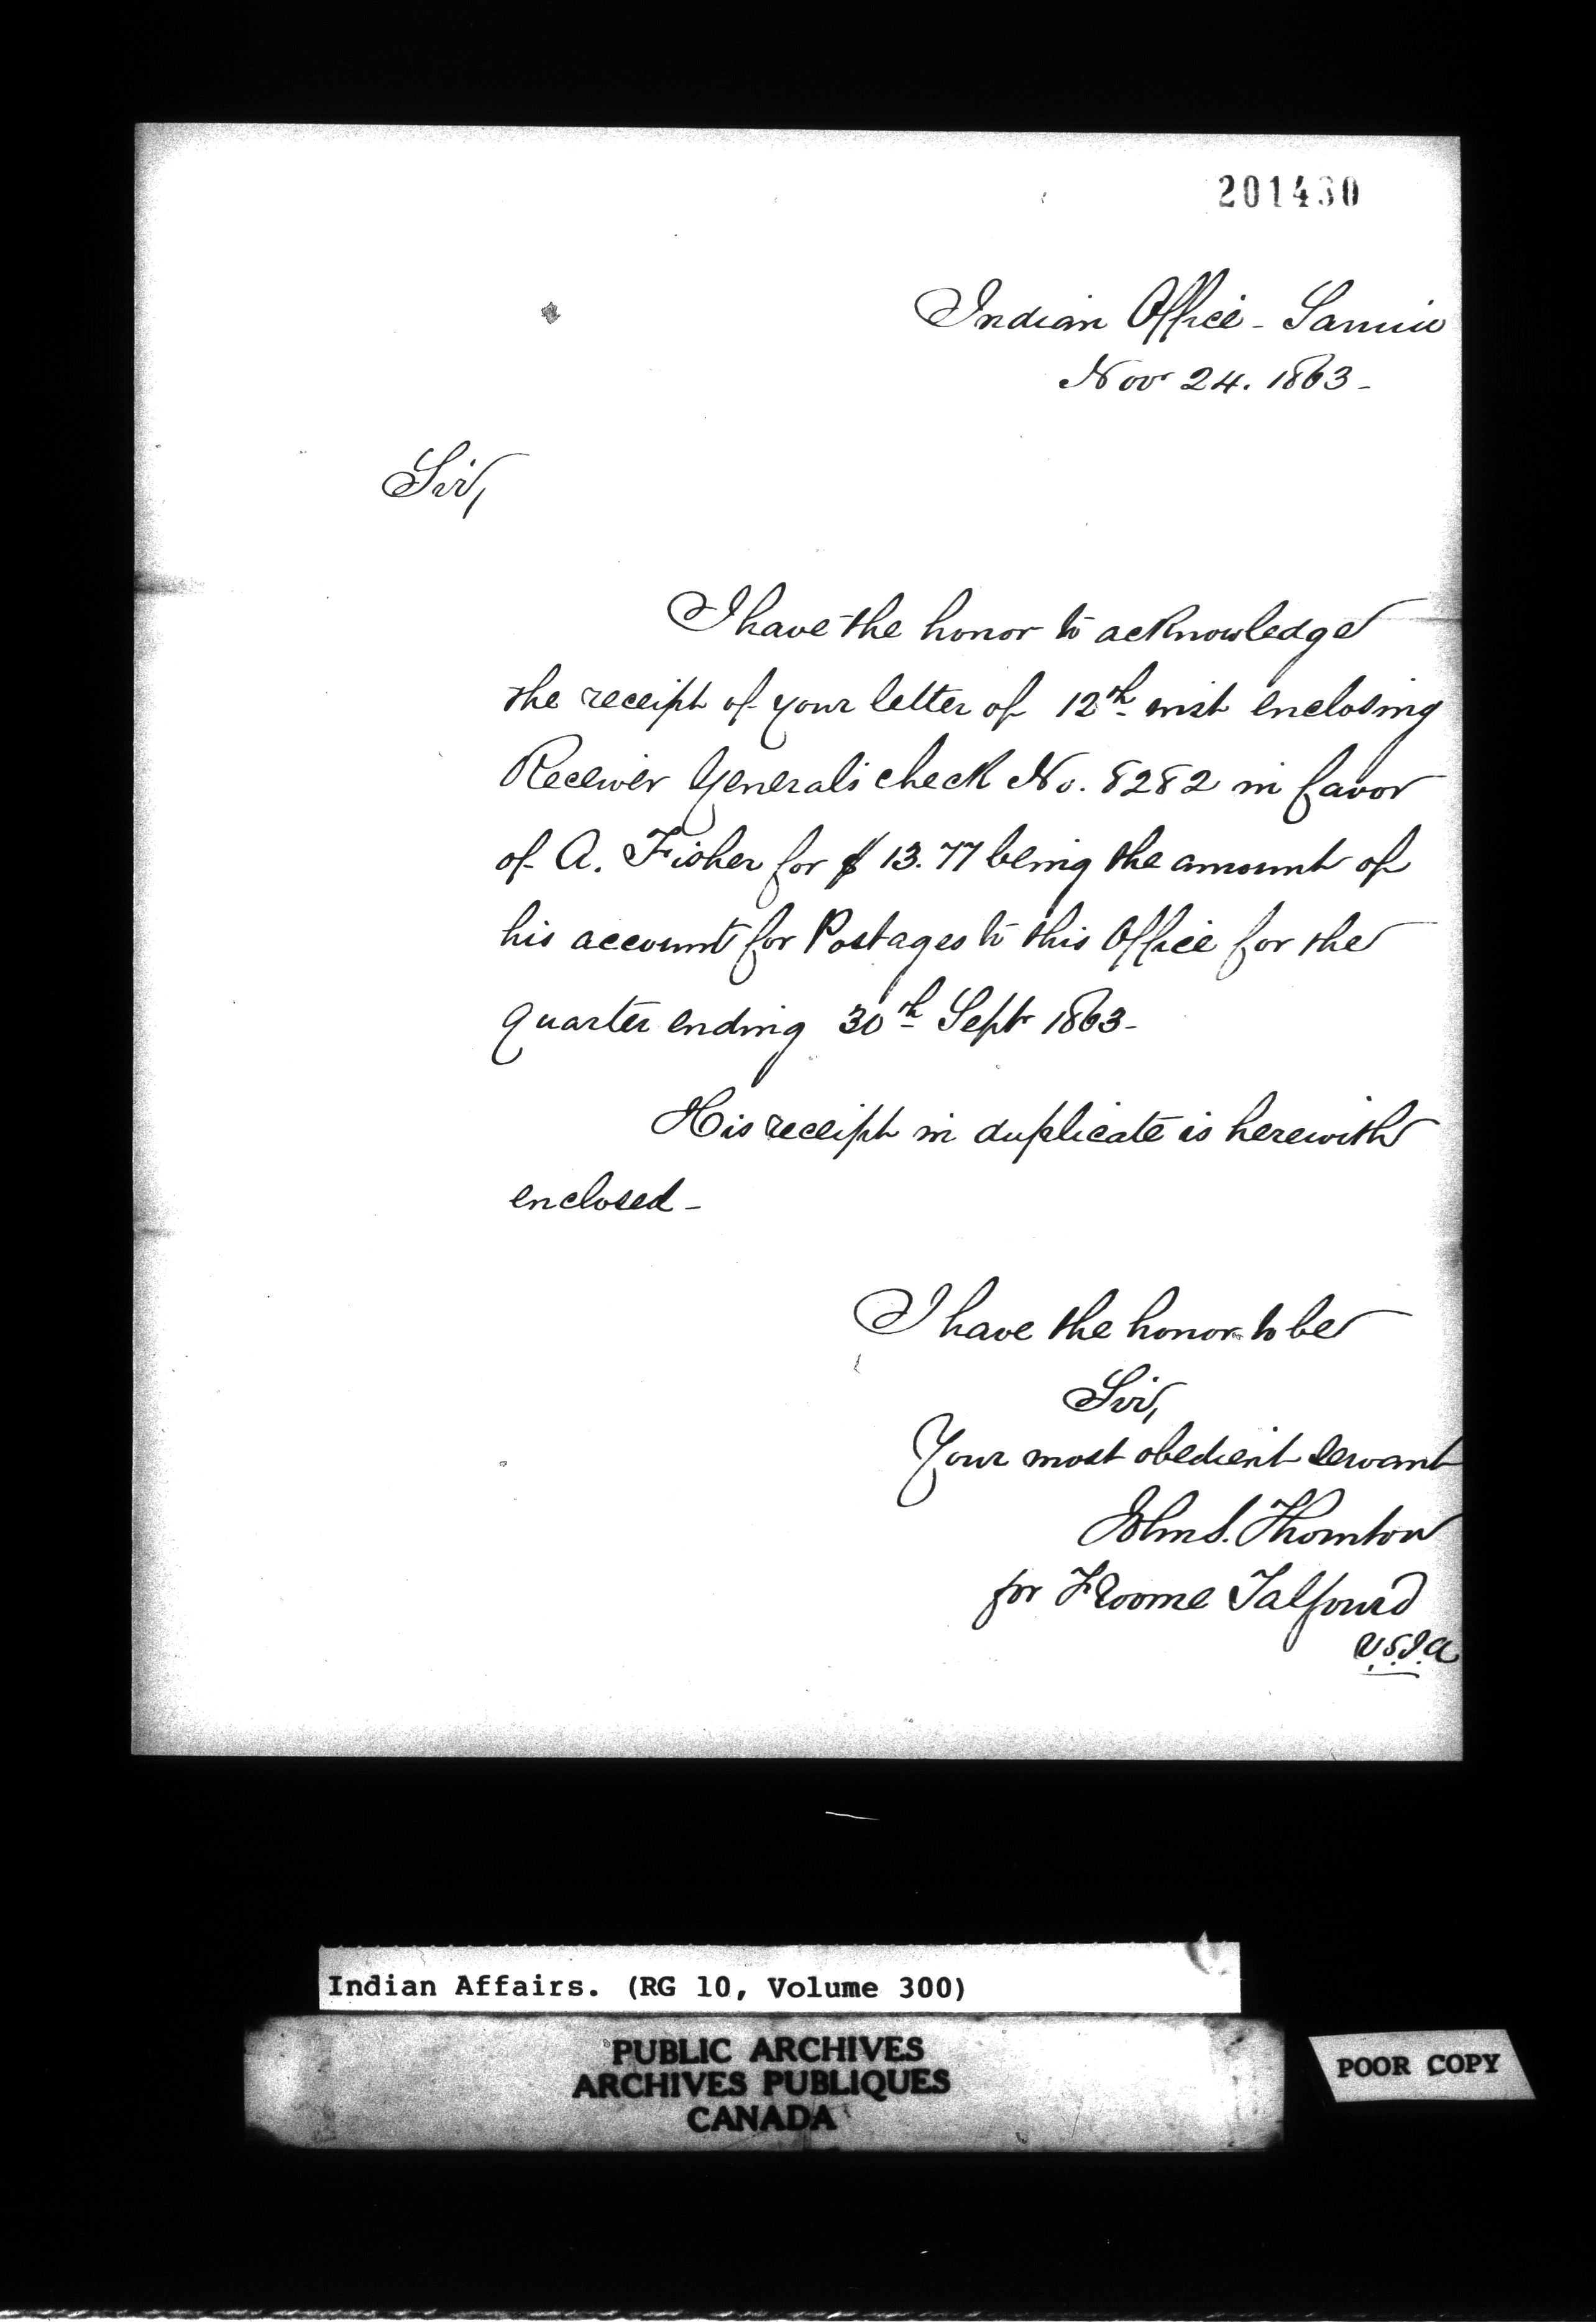 201430
Indian Office - Sarnia
Nov 24. 1863 -
Sir,
I have the honor to acknowledge
the receipt of your letter of 12th inst enclosing
Receiver Generals check No. 8282 in favor
of A. Fisher for $ 13.77 being the amount of
his account for Postages to this Office for the
quarter ending 30th Sept 1863 -
His receipt in duplicate is herewith
enclosed -
I have the honor to be
Sir,
Your most obedient servant
John S. Thornton
for Froome Talfourd
V.S.I.A
Indian Affairs. (RG 10, Volume 300)
PUBLIC ARCHIVES
ARCHIVES PUBLIQUES
CANADA
POOR COPY